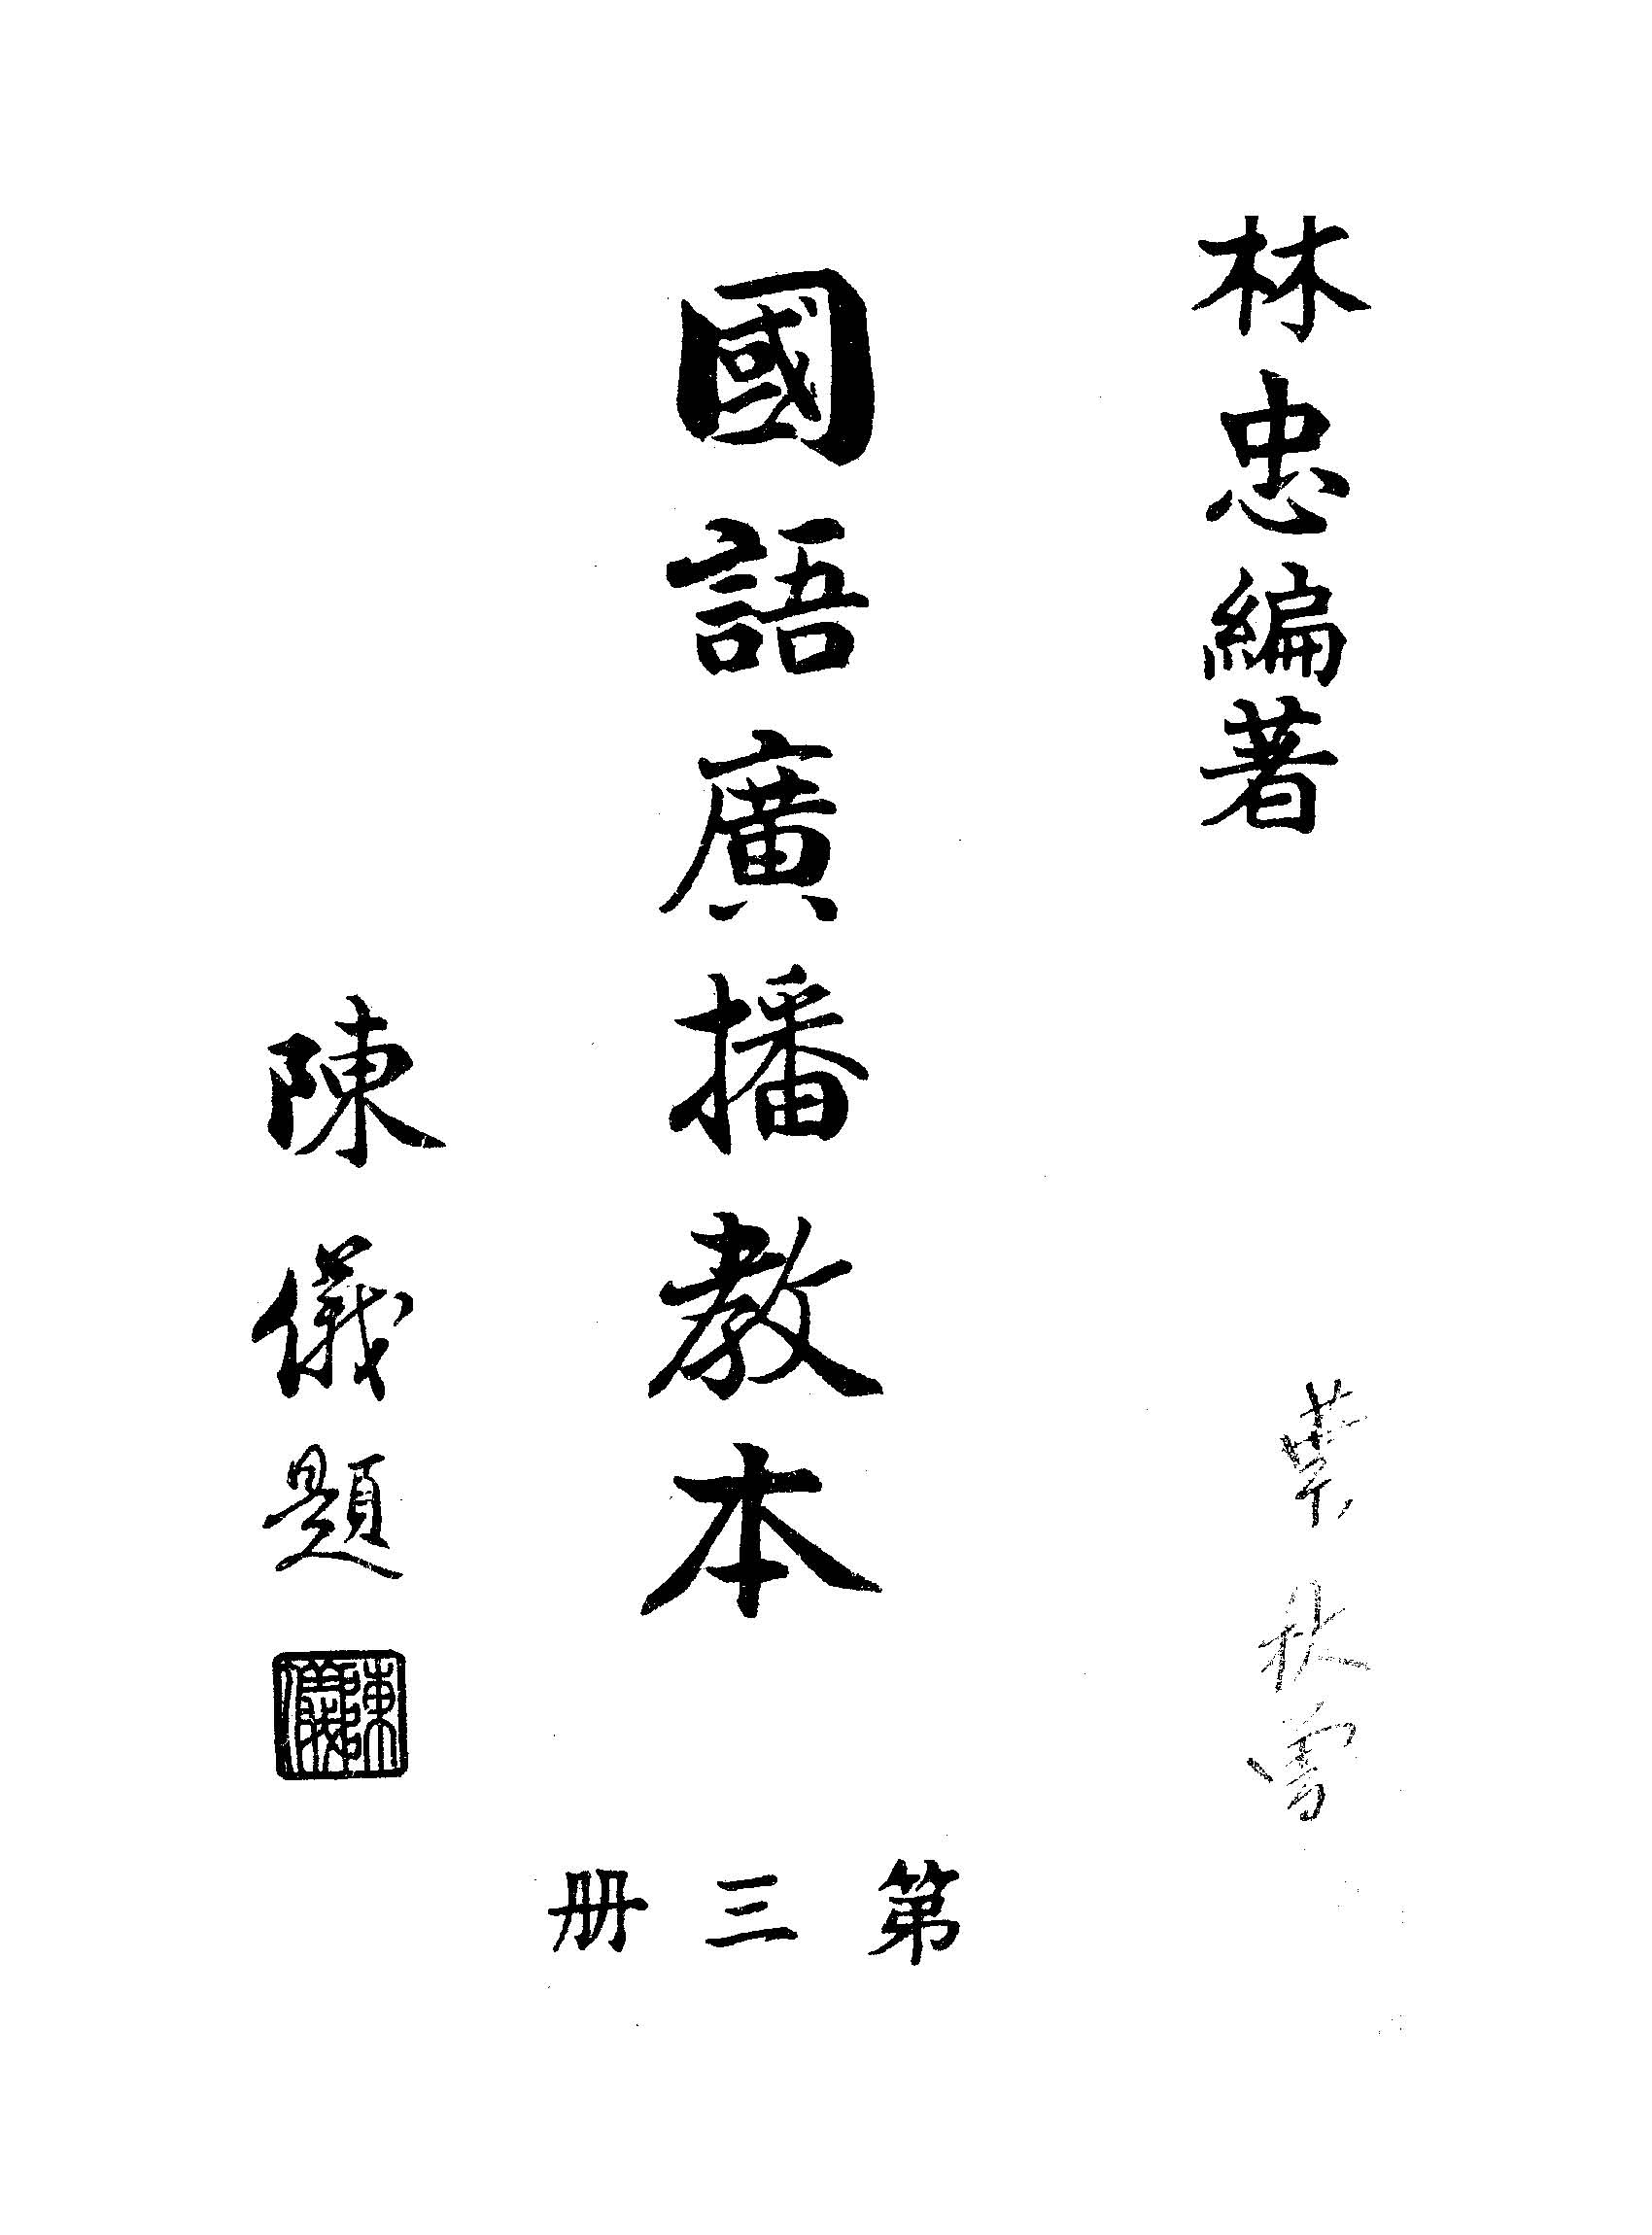 林忠編著
國語廣播教本
陳儀題
陳儀
第三册
葉秋雪